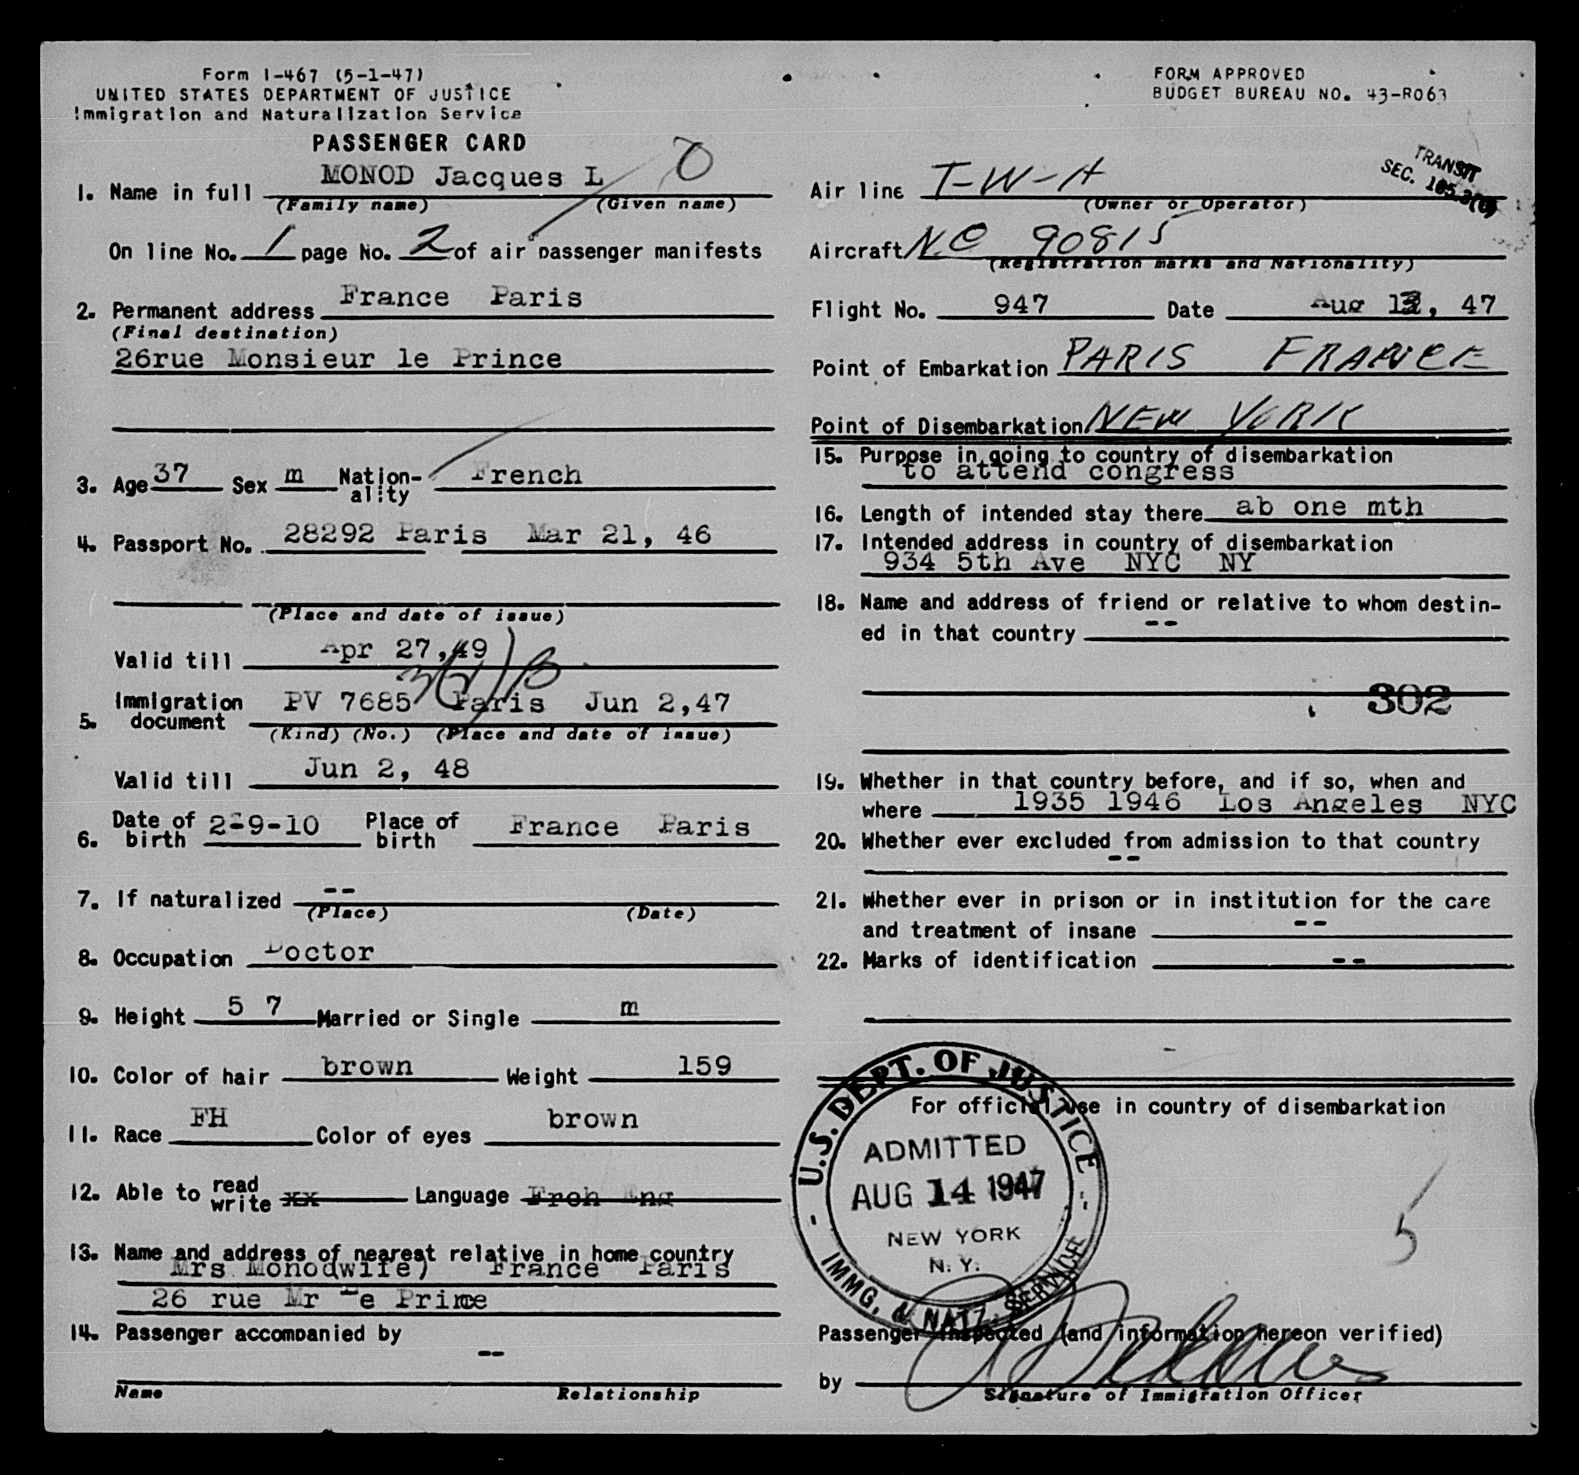 Form I-467 (5-1-47)
UNITED STATES DEPARTMENT OF JUSTICE
Immigration and Naturalization Service
PASSENGER CARD
FORM APPROVED
BUDGET BUREAU NO. 43-R063
TRANSIT
SEC.
1. Name in full MONOD Jacques L
(Family name) (Given name)
On line No. 1 page No. 2 of air passenger manifests
2. Permanent address France Paris
(Final destination)
26rue Monsieur le Prince
3. Age 37 Sex m Nation-ality French
4. Passport No. 28292 Paris Mar 21, 46
(Place and date of issue)
Valid till Apr 27,49
5. Immigration document PV 7685 Paris Jun 2,47
(Kind) (No.) (Place and date of issue)
Valid till Jun 2, 48
6. Date of birth 2-9-10 Place of birth France Paris
7. If naturalized --
(Place) (Date)
8. Occupation Doctor
9. Height 5 7 Married or Single m
10. Color of hair brown Weight 159
11. Race FH Color of eyes brown
12. Able to read write xx Language Frch Eng
13. Name and address of nearest relative in home country
Mrs Monod(wife) France Paris
26 rue Mr Le Prince
14. Passenger accompanied by
--
Name Relationship
Air line T-W-A
(Owner or Operator)
Aircraft NC 90815
(Registration marks and Nationality)
Flight No. 947 Date Aug 13, 47
Point of Embarkation PARIS FRANCE
Point of Disembarkation NEW YORK
15. Purpose in going to country of disembarkation
to attend congress
16. Length of intended stay there ab one mth
17. Intended address in country of disembarkation
934 5th Ave NYC NY
18. Name and address of friend or relative to whom destin-
ed in that country --
302
19. Whether in that country before, and if so, when and
where 1935 1946 Los Angeles NYC
20. Whether ever excluded from admission to that country
--
21. Whether ever in prison or in institution for the care
and treatment of insane --
22. Marks of identification --
For official use in country of disembarkation
U.S. DEPT. OF JUSTICE
ADMITTED
AUG 14 1947
NEW YORK
N. Y.
IMMG. & NATZ. SERVICE
5
Passenger inspected (and information hereon verified)
by
Signature of Immigration Officer